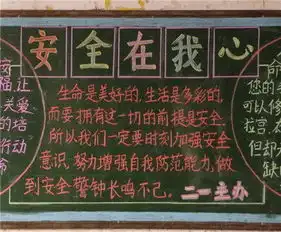 安全在我心
福让
关爱
的培
行动
命
生命是美好的,生活是多彩的,
而要拥有这一切的前提是安全
所以我们一定要时刻加强安全
意识,努力增强自我防范能力,做
到安全警钟长鸣不己。
二一主办
命
您的
可以修
拉宫
但却
缺